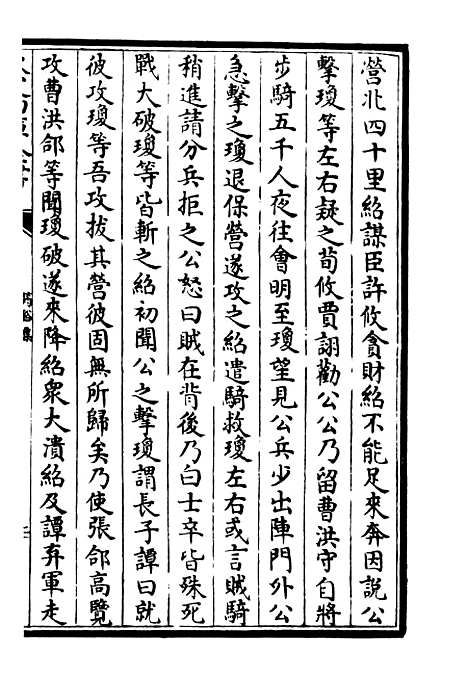 營北四十里紹謀臣許攸貪財紹不能足來奔因說公
擊瓊等左右疑之荀攸賈詡勸公公乃留曹洪守自將
步騎五千人夜往會明至瓊望見公兵少出陣門外公
急擊之瓊退保營遂攻之紹遣騎救瓊左右或言賊騎
稍進請分兵拒之公怒曰賊在背後乃白士卒皆殊死
戰大破瓊等皆斬之紹初聞公之擊瓊謂長子譚曰就
彼攻瓊等吾攻拔其營彼固無所歸矣乃使張郃高覽
攻曹洪郃等聞瓊破遂來降紹衆大潰紹及譚弃軍走